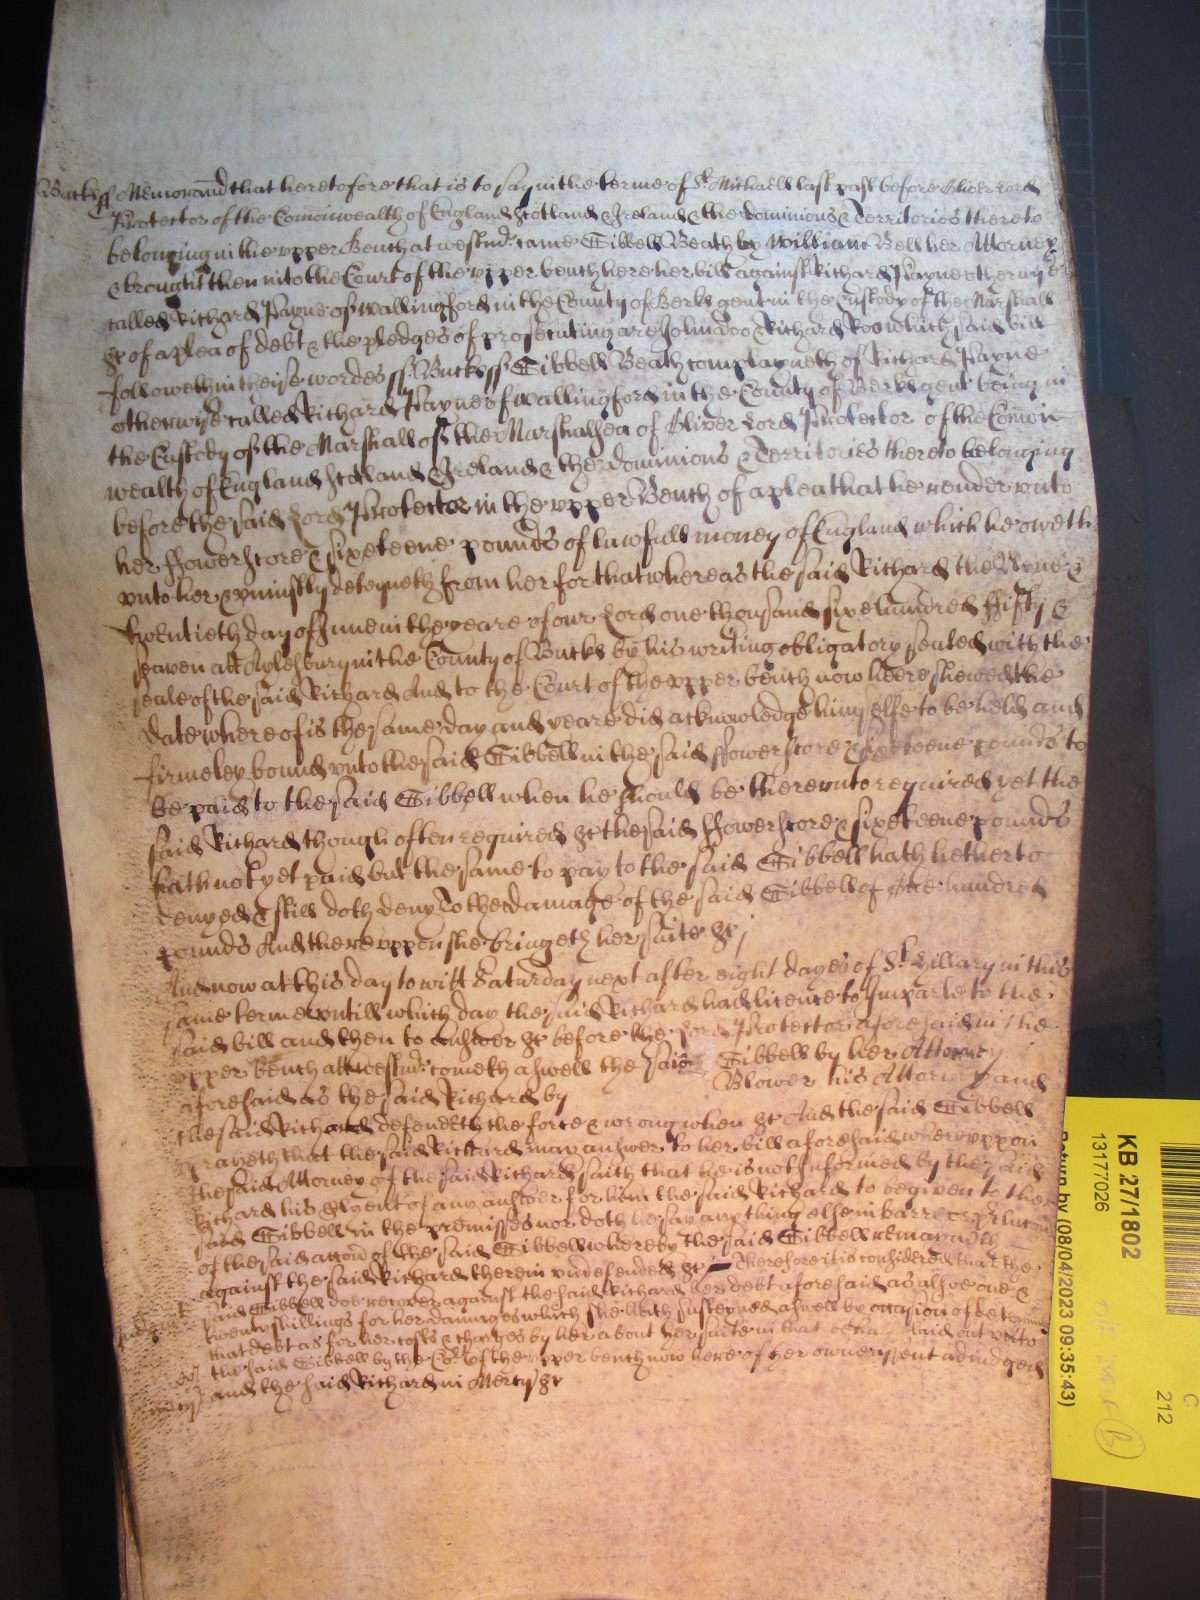 Bucks ss Memorand that heretofore that is to say in the terme of St. Michaell last past before Oliver Lord
Protector of the Comonwealth of England Scotland & Ireland & the dominions & Territories thereto
belonging in the upper Bench at Westmr. came Tibbell Beath by William Bell her Attorney
& brought then into the Court of the upper bench here her bill against Richard Payne otherwise
called Richard Payne of Wallingford in the County of Berks gent in the Custody of the Marshall
&c of a plea of debt & the pledges of prosecuting are John Doo & Richard Roo which said bill
followeth in theise wordes ss. Bucks ss Tibbell Beath complayneth of Richard Payne
otherwise called Richard Payne of Wallingford in the County of Berks gent being in
the Custody of the Marshall of the Marshalsea of Oliver Lord Protector of the Comon
wealth of England Scotland & Ireland & the dominions & Territories thereto belonging
before the said Lord Protector in the upper Bench of a plea that he render unto
her ffowerscore & sixeteene pounds of lawfull money of England which he oweth
unto her & uniustly deteyneth from her for that whereas the said Richard the
twentieth day of June in the yeare of our Lord one thousand six hundred ffifty &
seaven att Aylesbury in the County of Bucks by his writing obligatory sealed with the
seale of the said Richard And to the Court of the upper bench now heere shewed the
date whereof is the same day and yeare did acknowledge himselfe to be held and
firmeley bound unto the said Tibbell in the said ffowerscore & sixeteene pounds to
be paid to the said Tibbell when he should be thereunto required yet the
said Richard though often required &c the said ffowerscore & sixeteene pounds
hath not yet paid but the same to pay to the said Tibbell hath hetherto
denyed & still doth deny To the damage of the said Tibbell of hundred
pounds And thereuppon she bringeth her suite &c
And now at this day to witt Saturday next after eight dayes of St. Hillary in this
same terme untill which day the said Richard had licence to Imparle to the
said bill and then to answer &c before the Lord Protector aforesaid in the
upper bench att Westmr. cometh aswell the said Tibbell by her Attorney
aforesaid as the said Richard by Blower his Attorney and
the said Richard defendeth the force & wrong when &c And the said Tibbell
prayeth that the said Richard may answer to her bill aforesaid whereuppon
the said Attorney of the said Richard saith that he is not Informed by the said
Richard his Clyent of any answer for him the said Richard to be given to the
said Tibbell in the premisses nor doth he say any thing else in barre or preclusion
of the said accon of the said Tibbell whereby the said Tibbell remayneth
against the said Richard therein undefended &c Therefore it is considered that the
said Tibbell doe recover against the said Richard her debt aforesaid as alsoe one &
twenty shillings for her damages which she hath susteyned aswell by occasion of deteyning
that debt as for her costs & charges by her about her suite in that behalfe laid out unto
the said Tibbell by the Cort of the upper bench now here of her owne assent adiudged
and the said Richard in Mercy &c
KB 27/1802
13177026
Return by (08/04/2023 09:35:43)
C
212